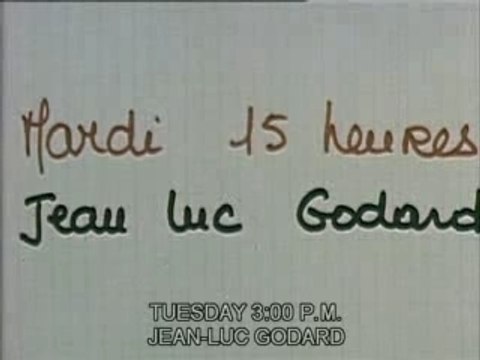 Mardi 15 heures
Jean Luc Godard
TUESDAY 3:00 P.M.
JEAN-LUC GODARD